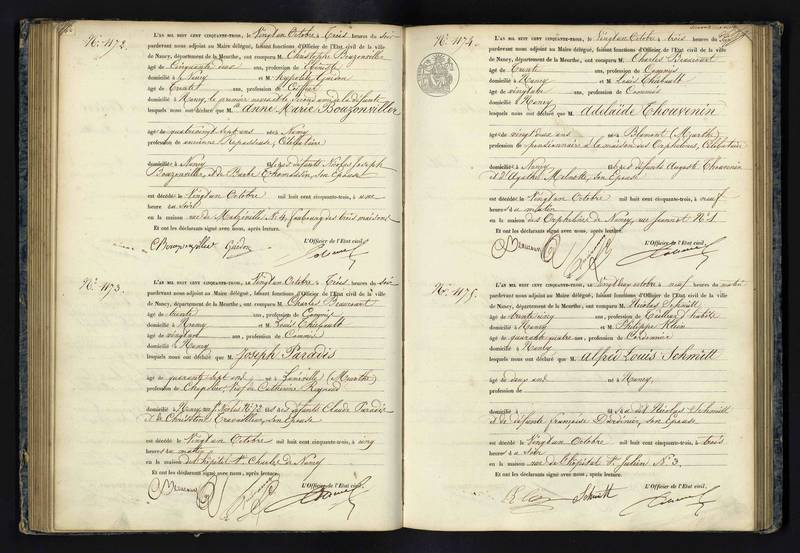 N°. 1172.
L'AN MIL HUIT CENT CINQUANTE-TROIS, le Vingt un Octobre à trois heures du soir
pardevant nous adjoint au Maire délégué, faisant fonctions d'Officier de l'Etat civil de la ville
de Nancy, département de la Meurthe, ont comparu M. Christophe Bouzonviller
âgé de Cinquante ans, profession de
domicilié à Nancy et M. Hypolite Guidon
âgé de Trente ans, profession de Coiffeur
domicilié à Nancy, le premier la défunte
lesquels nous ont déclaré que M. Anne Marie Bouzonviller
âgé de quatre vingt sept ans à Nancy
profession de ancienne Repasseuse, Célibataire
domicilié à Nancy défunts Nicolas Joseph
Bouzonviller, et de Barbe Thomassin, son Epouse
est décédé le Vingt un Octobre mil huit cent cinquante-trois, à une
heure du soir
en la maison rue de Malzéville N°. 4, faubourg des trois maisons
Et ont les déclarants signé avec nous, après lecture.
Bouzonviller Guidon L'Officier de l'Etat civil,
N°. 1173.
L'AN MIL HUIT CENT CINQUANTE-TROIS, le Vingt un Octobre à trois heures du soir
pardevant nous adjoint au Maire délégué, faisant fonctions d'Officier de l'Etat civil de la ville
de Nancy, département de la Meurthe, ont comparu M. Charles Beaucourt
âgé de trente ans, profession de Commis
domicilié à Nancy et M. Louis Thiébault
âgé de vingt ans, profession de Commis
domicilié à Nancy
lesquels nous ont déclaré que M. Joseph Paradis
âgé de quarante sept ans né à Lunéville (Meurthe)
profession de Chapelier, Veuf de Catherine
domicilié à Nancy, rue St. Nicolas N°. 12 défunts Claude Paradis
et de Christine son Epouse
est décédé le Vingt un Octobre mil huit cent cinquante-trois, à cinq
heures du matin
en la maison de l'hôpital St. Charles de Nancy
Et ont les déclarants signé avec nous, après lecture.
L'Officier de l'Etat civil,
N°. 1174.
L'AN MIL HUIT CENT CINQUANTE-TROIS, le Vingt un Octobre à trois heures du soir
pardevant nous adjoint au Maire délégué, faisant fonctions d'Officier de l'Etat civil de la ville
de Nancy, département de la Meurthe, ont comparu M. Charles Beaucourt
âgé de Trente ans, profession de Commis
domicilié à Nancy et M. Louis Thiébault
âgé de vingt ans, profession de Commis
domicilié à Nancy
lesquels nous ont déclaré que M. Adelaïde Thouvenin
âgé de vingt deux ans à Blamont (Meurthe)
profession de pensionnaire à la maison des Orphelines, Célibataire
domicilié à Nancy défunts Auguste Thouvenin
et d'Agathe son Epouse
est décédé le Vingt un Octobre mil huit cent cinquante-trois, à neuf
heures du matin
en la maison des Orphelines de Nancy, rue N°. 1
Et ont les déclarants signé avec nous, après lecture.
L'Officier de l'Etat civil,
N°. 1175.
L'AN MIL HUIT CENT CINQUANTE-TROIS, le Vingt deux octobre à neuf heures du matin
pardevant nous adjoint au Maire délégué, faisant fonctions d'Officier de l'Etat civil de la ville
de Nancy, département de la Meurthe, ont comparu M. Nicolas Schmitt
âgé de trente cinq ans, profession de Tailleur d'habits
domicilié à Nancy et M. Philippe Klein
âgé de quarante quatre ans, profession de Cordonnier
domicilié à Nancy
lesquels nous ont déclaré que M. Alfred Louis Schmitt
âgé de deux ans né à Nancy,
profession de
domicilié à fils de Nicolas Schmitt
et de défunte Françoise son Epouse
est décédé le Vingt un Octobre mil huit cent cinquante-trois, à trois
heures du soir
en la maison rue de l'hôpital St. Julien N°. 3.
Et ont les déclarants signé avec nous, après lecture.
Klein Schmitt L'Officier de l'Etat civil,